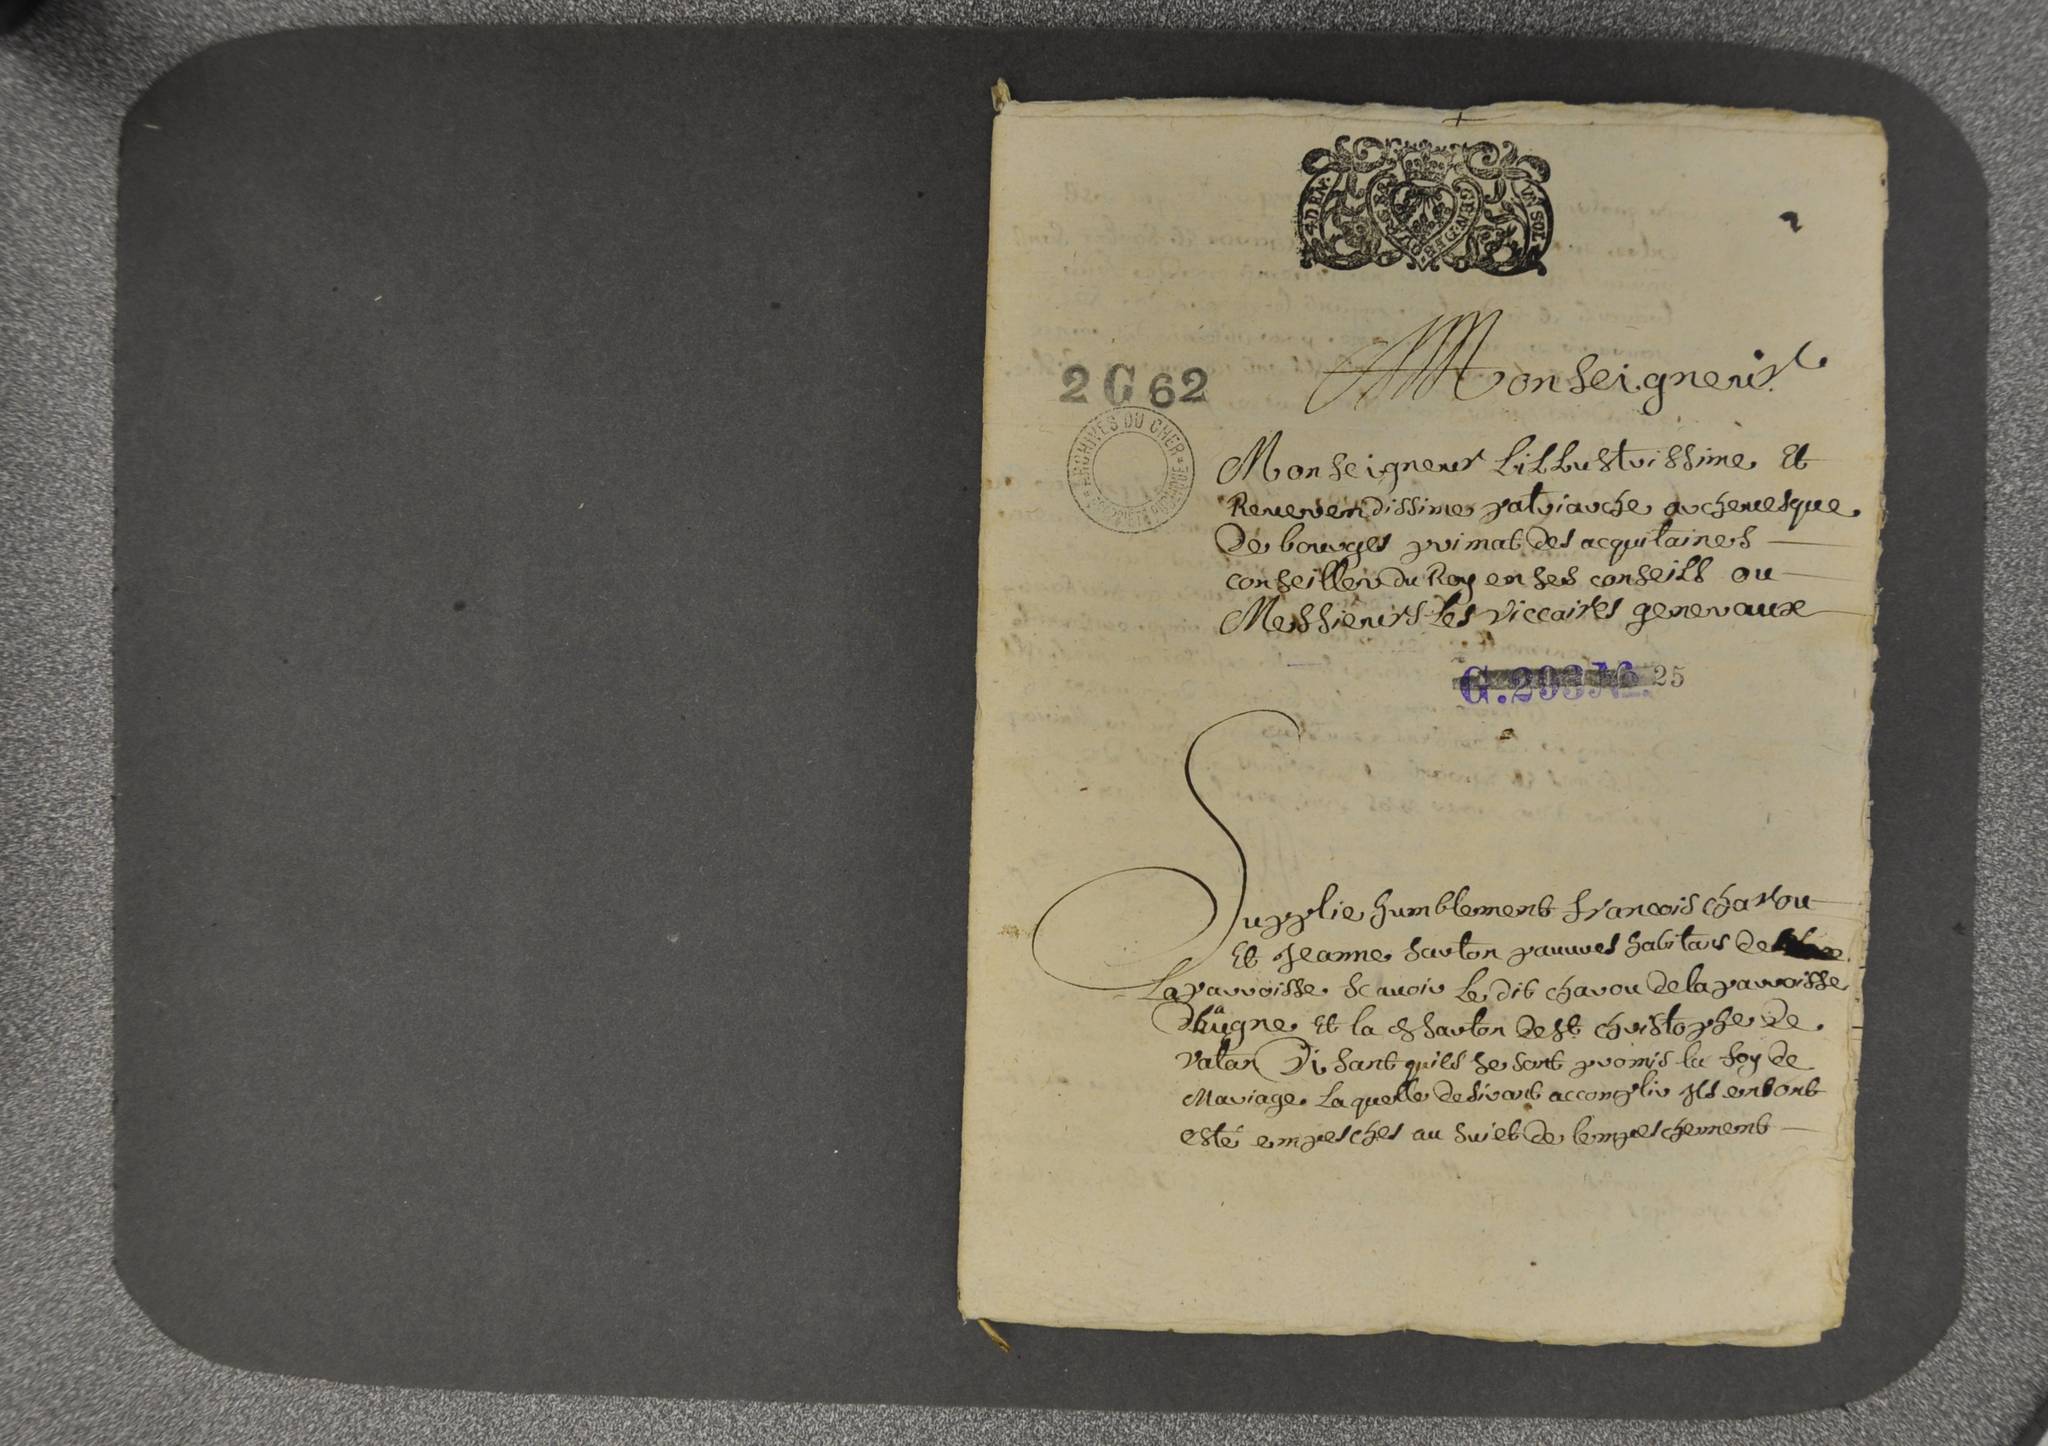 4.DEN.
VN SOL.
GEN.DE BOVRGES
2 G 62
ARCHIVES DU CHER
Monseigneur
Monseigneur Lillustrissime Et
Reverendissime patriarche archevesque
De bourges primat des acquitaines
conseiller du Roy en ses conseils ou
Messieurs les viccaires generaux
G.293 25
Supplie humblement francois charou
Et Jeanne sarton pauvres habitans de
La parroisse scavoir le dit charou de la parroisse
Et la de st christophe de
vatan Disant quils se sont promis la foy de
Mariage Laquelle desirant accomplir Ils en sont
esté empesches au suiet de lempeschement